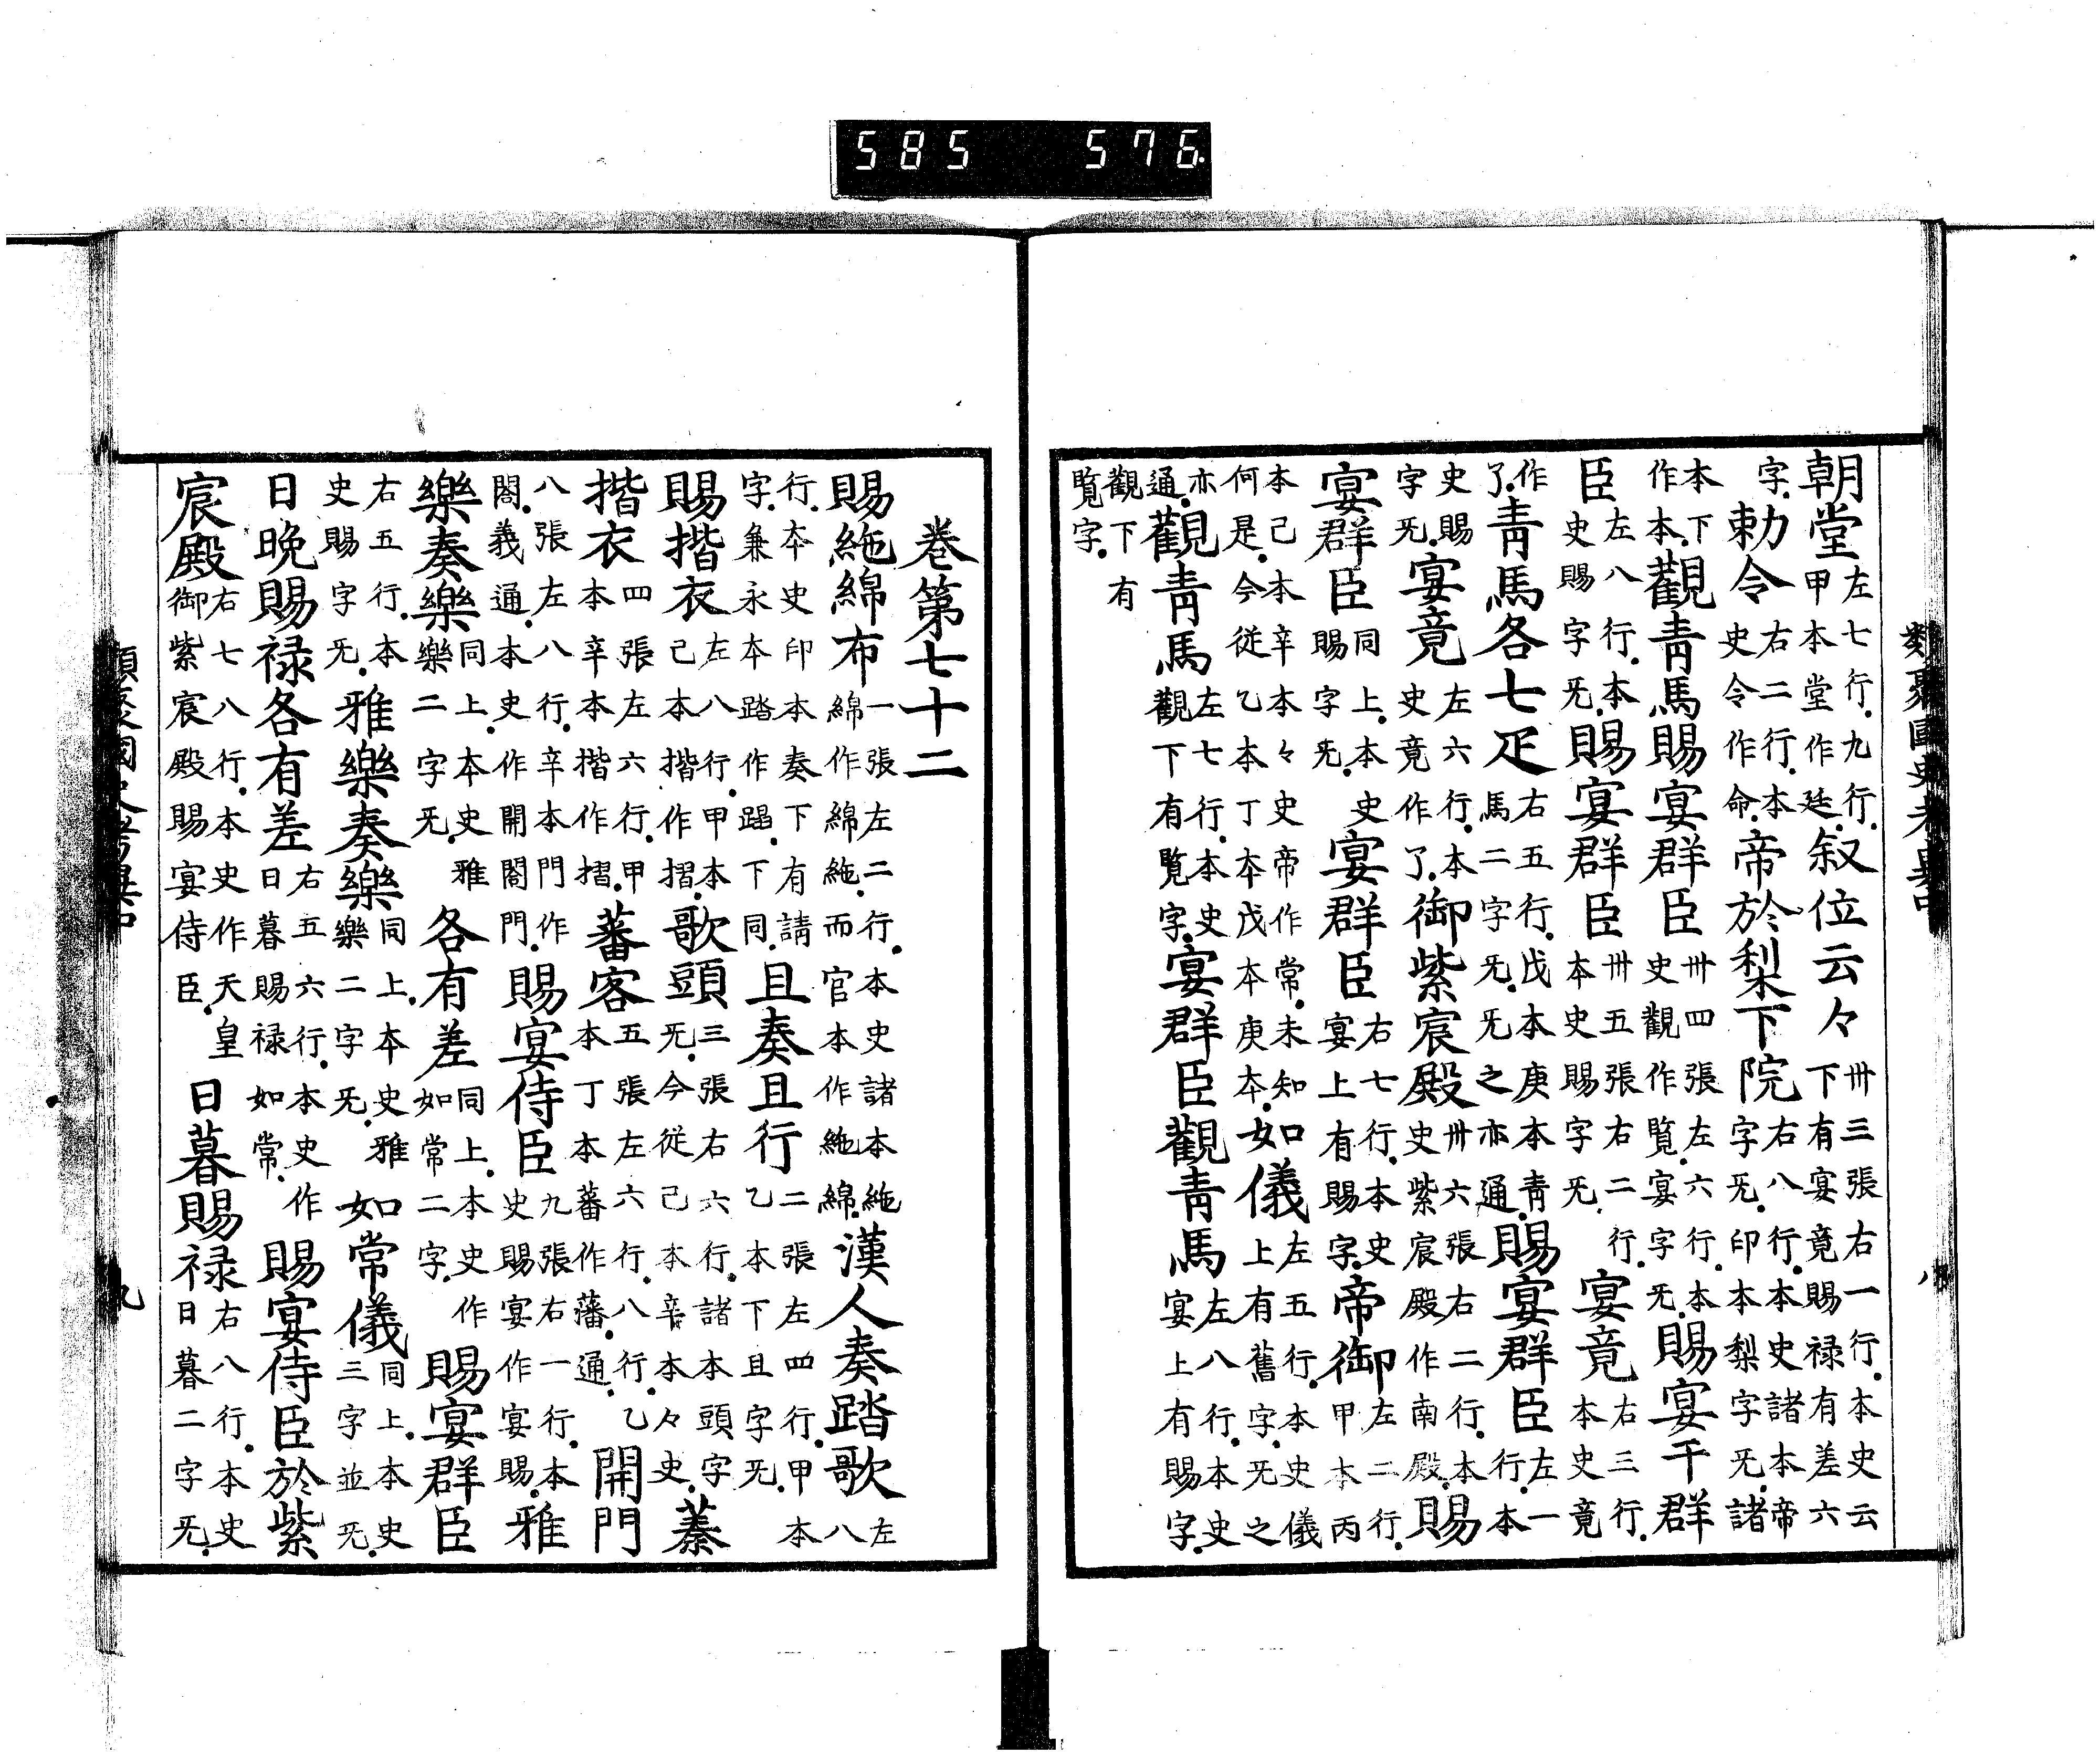 585 576.
朝堂左七行九行甲本堂作廷叙位云々卅三張右一行本史云下有宴竟賜禄有差六
字勅令右二行本史令作命帝於梨下院右八行本史諸本帝字旡印本梨字旡諸
本下作本觀青馬賜宴群臣卅四張左六行本史觀作覧宴字旡賜宴于群
臣左八行本史賜字旡賜宴群臣卅五張右二行本史賜字旡宴竟右三行本史竟
作了青馬各七疋右五行戊本庚本青馬二字旡旡之亦通賜宴群臣左一行本
史賜字旡宴竟左六行本史竟作了御紫宸殿卅六張右二行本史紫宸殿作南殿賜
宴群臣同上本史賜字旡宴群臣右七行本史宴上有賜字帝御左二行甲本丙
本己本辛本々史帝作常未知何是今従乙本丁本戊本庚本如儀左五行本史儀上有舊字旡之
亦通觀青馬左七行本史觀下有覧字宴群臣觀青馬左八行本史宴上有賜字
觀下有覧字
八
巻第七十二
賜絁綿布一張左二行本史諸本絁綿作綿絁而官本作絁綿漢人奏踏歌左八
行本史印本奏下有請字兼永本踏作蹋下同且奏且行二張左四行甲本乙本下且字旡蓁
賜揩衣左八行甲本己本揩作摺歌頭三張右六行諸本頭字旡今従己本辛本々史蓁
揩衣四張左六行甲本辛本揩作摺蕃客五張左六行八行乙本丁本蕃作藩通開門
八張左八行辛本門作閤義通本史作開閤門賜宴侍臣九張右一行本史賜宴作宴賜雅
樂奏樂同上本史雅樂二字旡各有差同上本史作如常二字賜宴群臣
右五行本史賜字旡雅樂奏樂同上本史雅樂二字旡如常儀同上本史三字並旡
日晩賜禄各有差右五六行本史作日暮賜禄如常賜宴侍臣於紫
宸殿右七八行本史作天皇御紫宸殿賜宴侍臣日暮賜禄右八行本史日暮二字旡
九